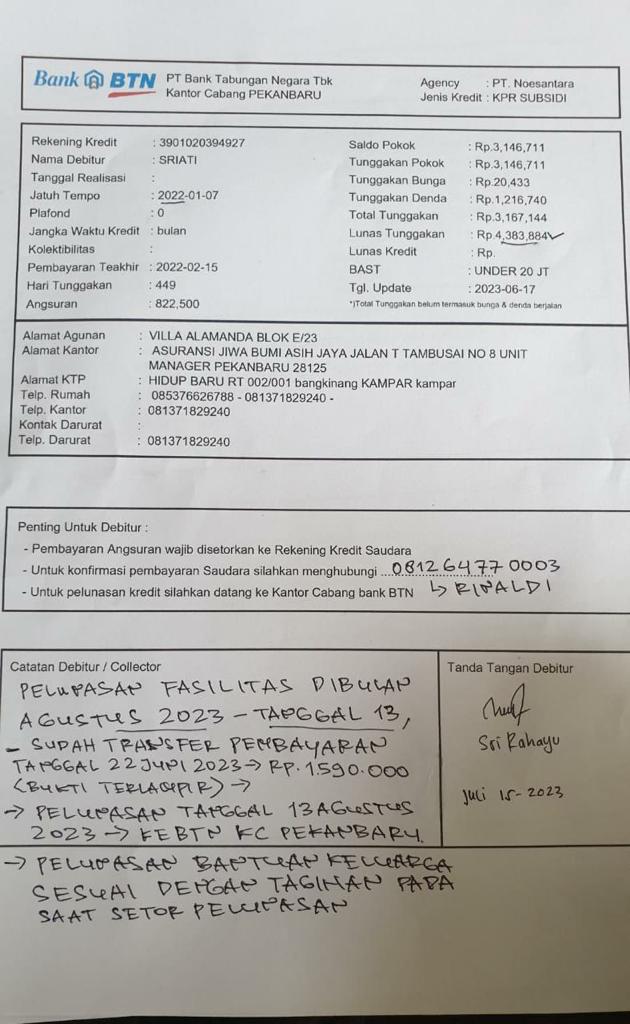 Bank BTN PT Bank Tabungan Negara Tbk
Kantor Cabang PEKANBARU
Agency : PT. Noesantara
Jenis Kredit : KPR SUBSIDI
Rekening Kredit : 3901020394927
Nama Debitur : SRIATI
Tanggal Realisasi :
Jatuh Tempo : 2022-01-07
Plafond : 0
Jangka Waktu Kredit : bulan
Kolektibilitas :
Pembayaran Teakhir : 2022-02-15
Hari Tunggakan : 449
Angsuran : 822,500
Saldo Pokok : Rp.3,146,711
Tunggakan Pokok : Rp.3,146,711
Tunggakan Bunga : Rp.20,433
Tunggakan Denda : Rp.1,216,740
Total Tunggakan : Rp.3,167,144
Lunas Tunggakan : Rp.4,383,884
Lunas Kredit : Rp.
BAST : UNDER 20 JT
Tgl. Update : 2023-06-17
*)Total Tunggakan belum termasuk bunga & denda berjalan
Alamat Agunan : VILLA ALAMANDA BLOK E/23
Alamat Kantor : ASURANSI JIWA BUMI ASIH JAYA JALAN T TAMBUSAI NO 8 UNIT
MANAGER PEKANBARU 28125
Alamat KTP : HIDUP BARU RT 002/001 bangkinang KAMPAR kampar
Telp. Rumah : 085376626788 - 081371829240 -
Telp. Kantor : 081371829240
Kontak Darurat :
Telp. Darurat : 081371829240
Penting Untuk Debitur :
- Pembayaran Angsuran wajib disetorkan ke Rekening Kredit Saudara
- Untuk konfirmasi pembayaran Saudara silahkan menghubungi ...081264770003
- Untuk pelunasan kredit silahkan datang ke Kantor Cabang bank BTN ↳ RINALDI
Catatan Debitur / Collector
PELUNASAN FASILITAS DIBULAN
AGUSTUS 2023 - TANGGAL 13,
- SUDAH TRANSFER PEMBAYARAN
TANGGAL 22 JUNI 2023 → RP. 1.590.000
(BUKTI TERLAMPIR) →
→ PELUNASAN TANGGAL 13 AGUSTUS
2023 → KE BTN KC PEKANBARU.
→ PELUNASAN BANTUAN KELUARGA
SESUAI DENGAN TAGIHAN PADA
SAAT SETOR PELUNASAN
Tanda Tangan Debitur
Sri Rahayu
Juli 15-2023